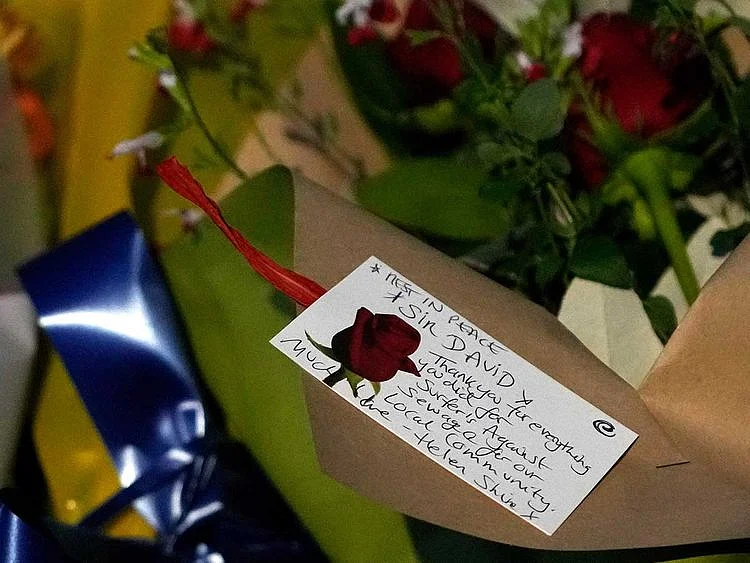 * REST IN PEACE
* SIR DAVID *
Thankyou for everything
you did for
Surfer's Against
Sewage & for our
Local Community.
Much love - Helen